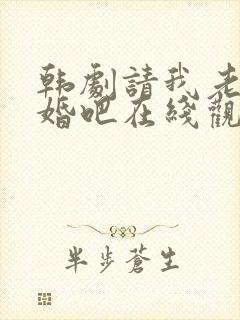 韩劇請我老
婚吧在綫觀
半步蒼生